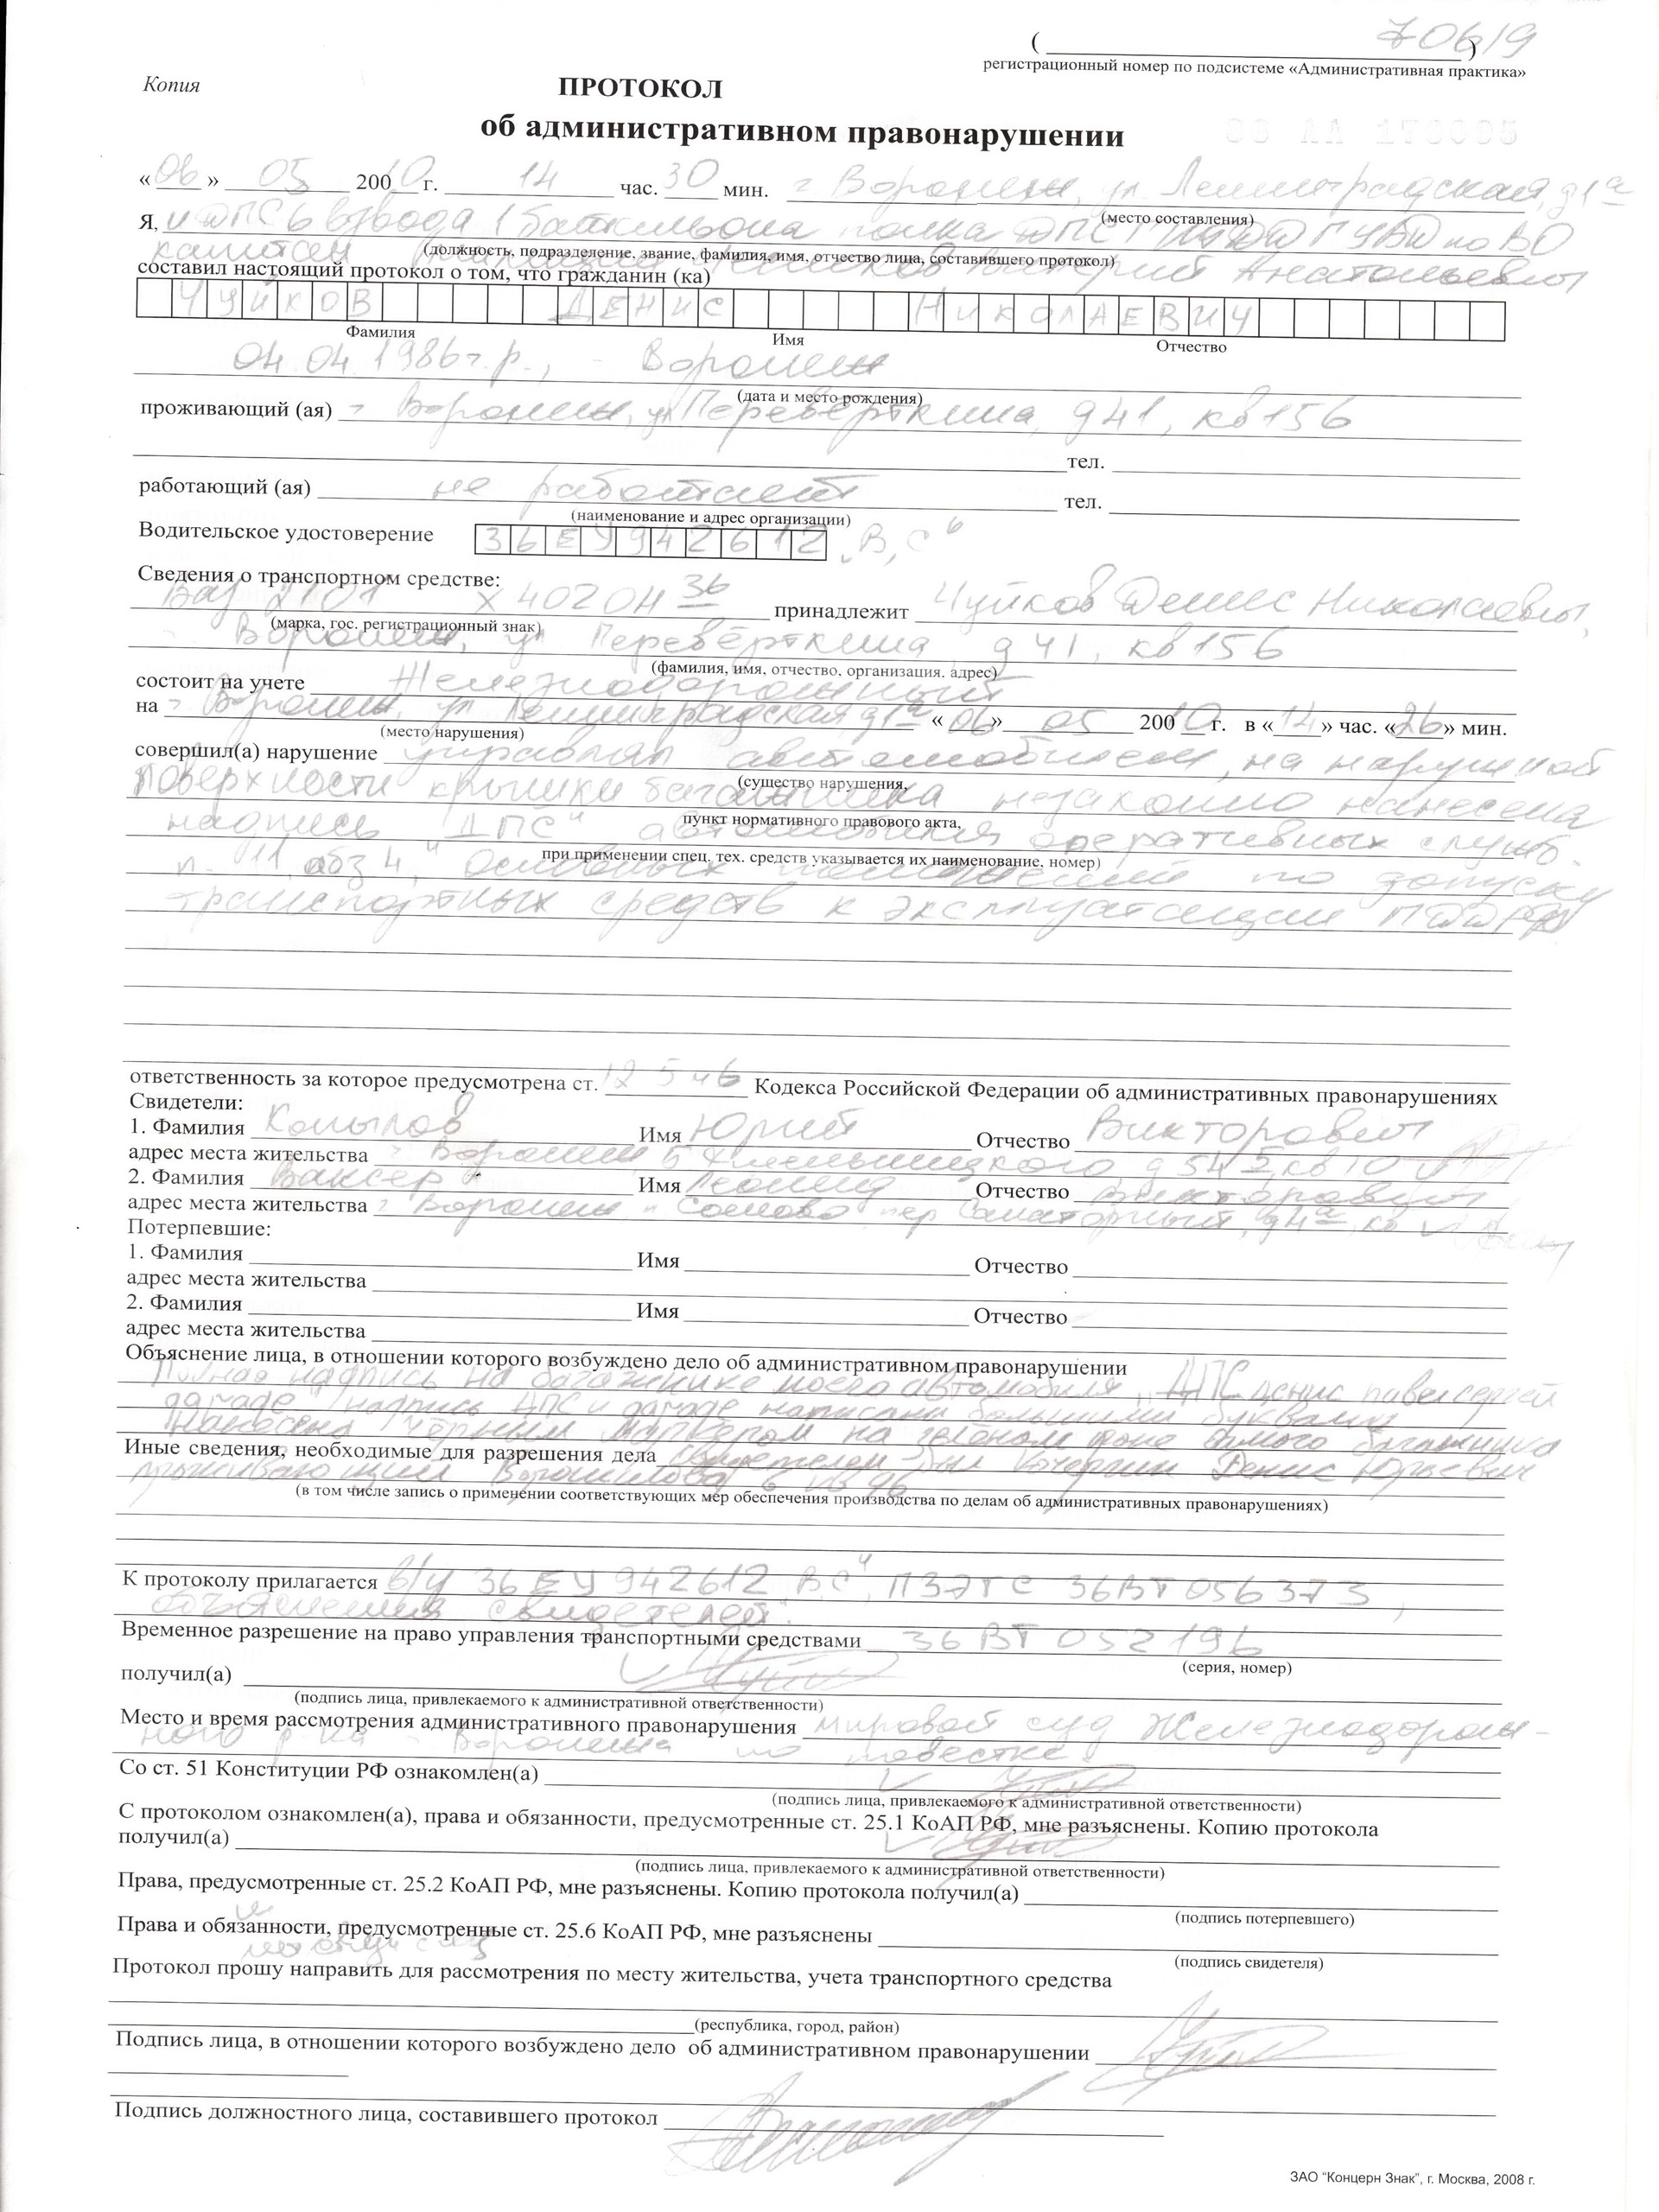 70619
( )
регистрационный номер по подсистеме «Административная практика»
Копия
ПРОТОКОЛ
об административном правонарушении
« 06 » 05 200 0 г. 14 час. 30 мин. г Воронеж, ул. Ленинградская, д1а
(место составления)
Я, и ДПС 6 взвода 1 батальона полка ДПС ГУВД по ВО
(должность, подразделение, звание, фамилия, имя, отчество лица, составившего протокол)
капитан Анатольевич
составил настоящий протокол о том, что гражданин (ка)
ЧУЙКОВ ДЕНИС НИКОЛАЕВИЧ
Фамилия Имя Отчество
04.04.1986г.р., г Воронеж
(дата и место рождения)
проживающий (ая) г Воронеж, ул Перевёрткина, д41, кв156
тел.
работающий (ая) не работает тел.
(наименование и адрес организации)
Водительское удостоверение 36ЕУ942612 „В,С“
Сведения о транспортном средстве:
Ваз 2101 Х402ОН 36 принадлежит Чуйков Денис Николаевич,
(марка, гос. регистрационный знак)
г Воронеж, ул Перевёрткина, д41, кв156
(фамилия, имя, отчество, организация, адрес)
состоит на учете Железнодорожный
на г Воронеж, ул Ленинградская д1а «06» 05 200 10 г. в «14» час. «26» мин.
(место нарушения)
совершил(а) нарушение управлял автомобилем, на наружной
(существо нарушения,
поверхности крышки багажника незаконно нанесена
пункт нормативного правового акта,
надпись „ДПС“ автомобиля оперативных служб.
при применении спец. тех. средств указывается их наименование, номер)
п. 11 абз 4 „Основных положений по допуску
транспортных средств к эксплуатации ПДД РФ
ответственность за которое предусмотрена ст. 12 5 ч6 Кодекса Российской Федерации об административных правонарушениях
Свидетели:
1. Фамилия Копылов Имя Юрий Отчество Викторович
адрес места жительства г Воронеж Б Хмельницкого, д 54 кв 10
2. Фамилия Ваксер Имя Леонид Отчество Викторович
адрес места жительства г Воронеж п Сомово пер Санаторный, д4а, кв
Потерпевшие:
1. Фамилия Имя Отчество
адрес места жительства
2. Фамилия Имя Отчество
адрес места жительства
Объяснение лица, в отношении которого возбуждено дело об административном правонарушении
Полная надпись на багажнике моего автомобиля „ДПС денис павел сергей
надпись ДПС и написаны большими буквами
нанесена чёрным маркером на зелёном фоне самого багажника
Иные сведения, необходимые для разрешения дела свидетелем был Кочергин Денис Юрьевич
проживающий Ворошилова 6 кв 96
(в том числе запись о применении соответствующих мер обеспечения производства по делам об административных правонарушениях)
К протоколу прилагается в/у 36 ЕУ 942612 „ВС“, ПЗЭТС 36ВТ056373,
объяснения свидетелей.
Временное разрешение на право управления транспортными средствами 36 ВТ 052196
(серия, номер)
получил(а)
(подпись лица, привлекаемого к административной ответственности)
Место и время рассмотрения административного правонарушения мировой суд Железнодорож-
ного р-на г Воронежа по повестке
Со ст. 51 Конституции РФ ознакомлен(а)
(подпись лица, привлекаемого к административной ответственности)
С протоколом ознакомлен(а), права и обязанности, предусмотренные ст. 25.1 КоАП РФ, мне разъяснены. Копию протокола
получил(а)
(подпись лица, привлекаемого к административной ответственности)
Права, предусмотренные ст. 25.2 КоАП РФ, мне разъяснены. Копию протокола получил(а)
(подпись потерпевшего)
Права и обязанности, предусмотренные ст. 25.6 КоАП РФ, мне разъяснены
(подпись свидетеля)
Протокол прошу направить для рассмотрения по месту жительства, учета транспортного средства
(республика, город, район)
Подпись лица, в отношении которого возбуждено дело об административном правонарушении
Подпись должностного лица, составившего протокол
ЗАО "Концерн Знак", г. Москва, 2008 г.